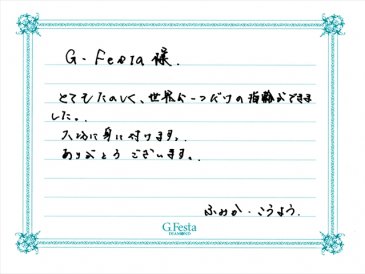 G.Festa 様.
とてもたのしく、世界に一つだけの指輪ができま
した。
大切に身に付けます。
ありがとうございます。
ふみか・こうよう.
G.Festa
DIAMOND